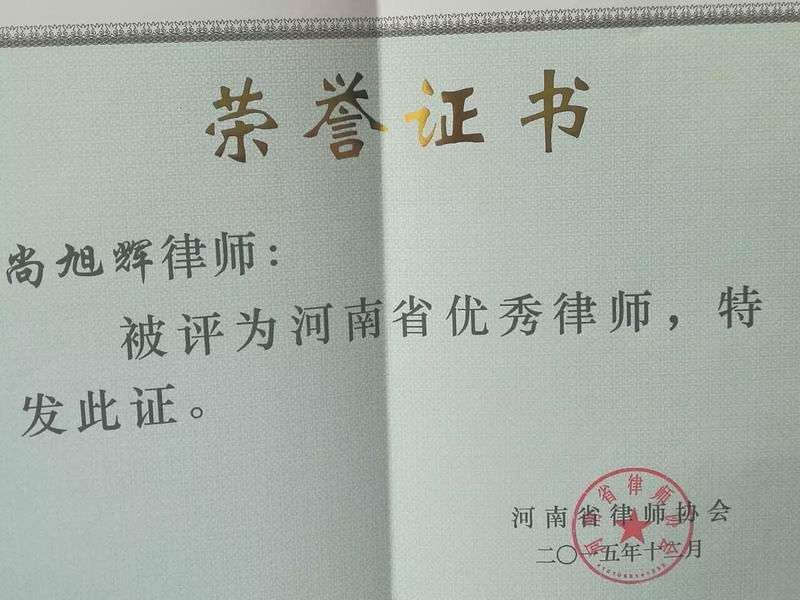 荣誉证书
尚旭辉律师：
被评为河南省优秀律师，特
发此证。
河南省律师协会
二〇一五年十二月
河南省律师协会